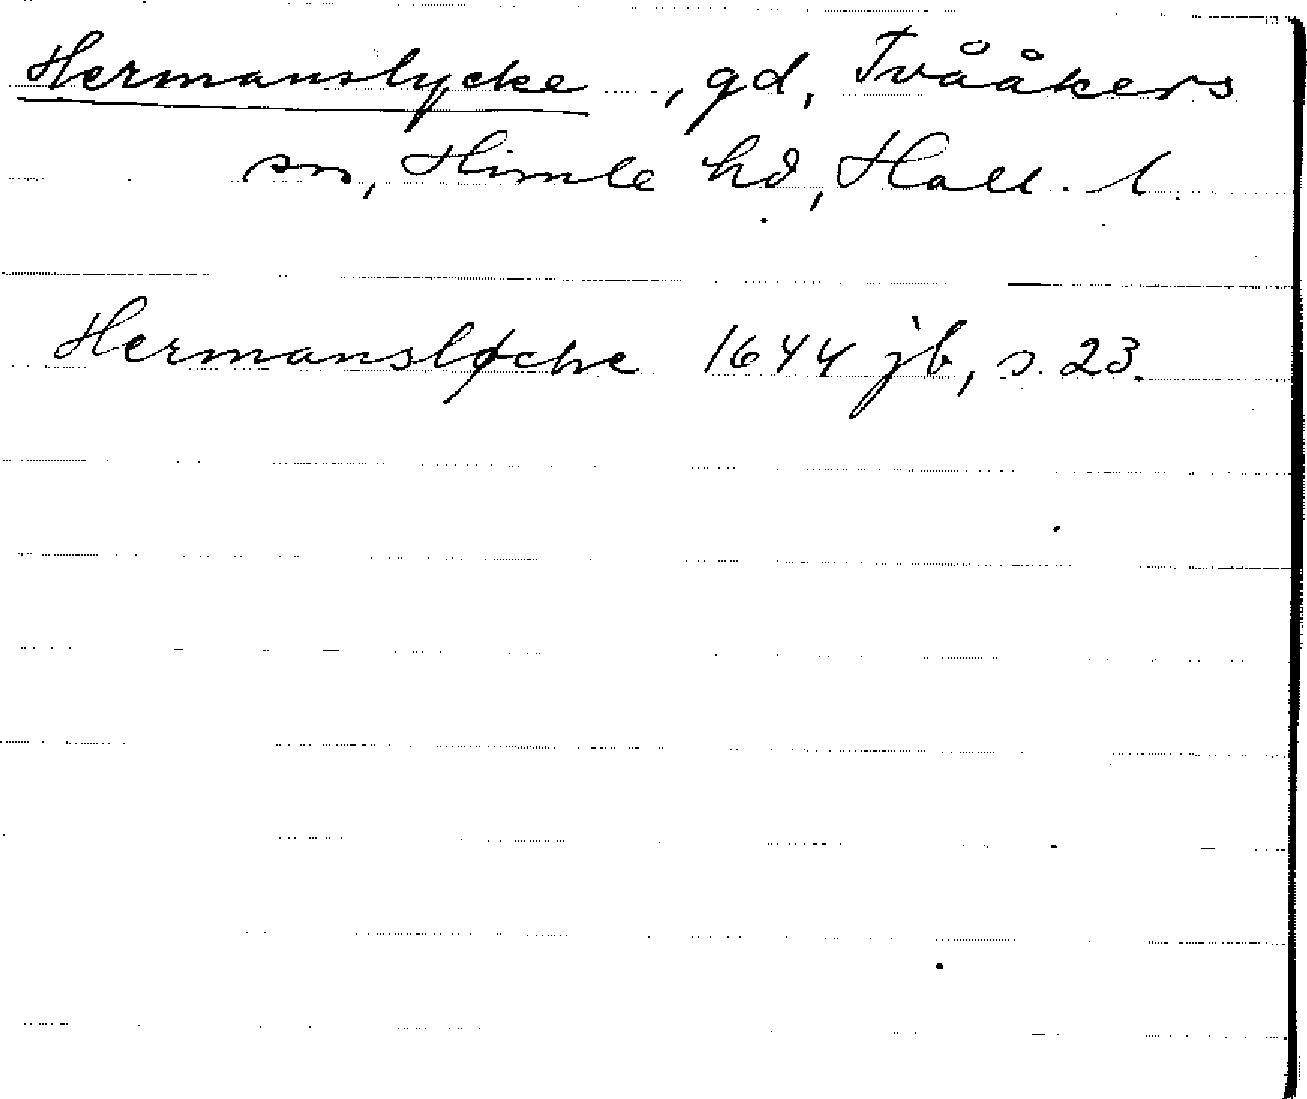 Hermanslycke, gd, Tvååkers
sn, Himle hd, Hall. l.
Hermansløche 1644 jb, s. 23.